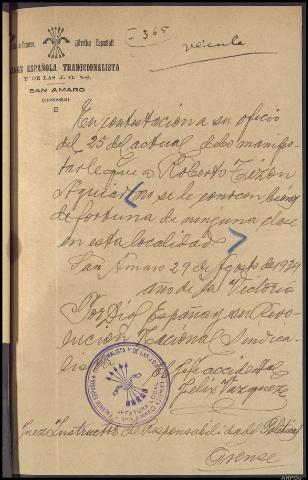 365
¡Arriba España!
ESPAÑOLA TRADICIONALISTA
Y DE LAS J. O. N-S.
SAN AMARO
(ORENSE)
En contestacion a su oficio
del 25 del actual debo manifes-
tarle que a Roberto Tizon
no se le conocen bienes
de fortuna de ninguna clase
en esta localidad
San Amaro 29 de Agosto de 1939
ano de la Victoria
Por Dios España y su Revo-
lucion Nacional Sindica-
lista
El Jefe accidental
Felix Vazquez
FALANGE ESPAÑOLA TRADICIONALISTA Y DE LAS J.O.N.S.
JEFATURA LOCAL
SAN AMARO (ORENSE)
Juez Instructor de Responsabilidades Politicas
Orense